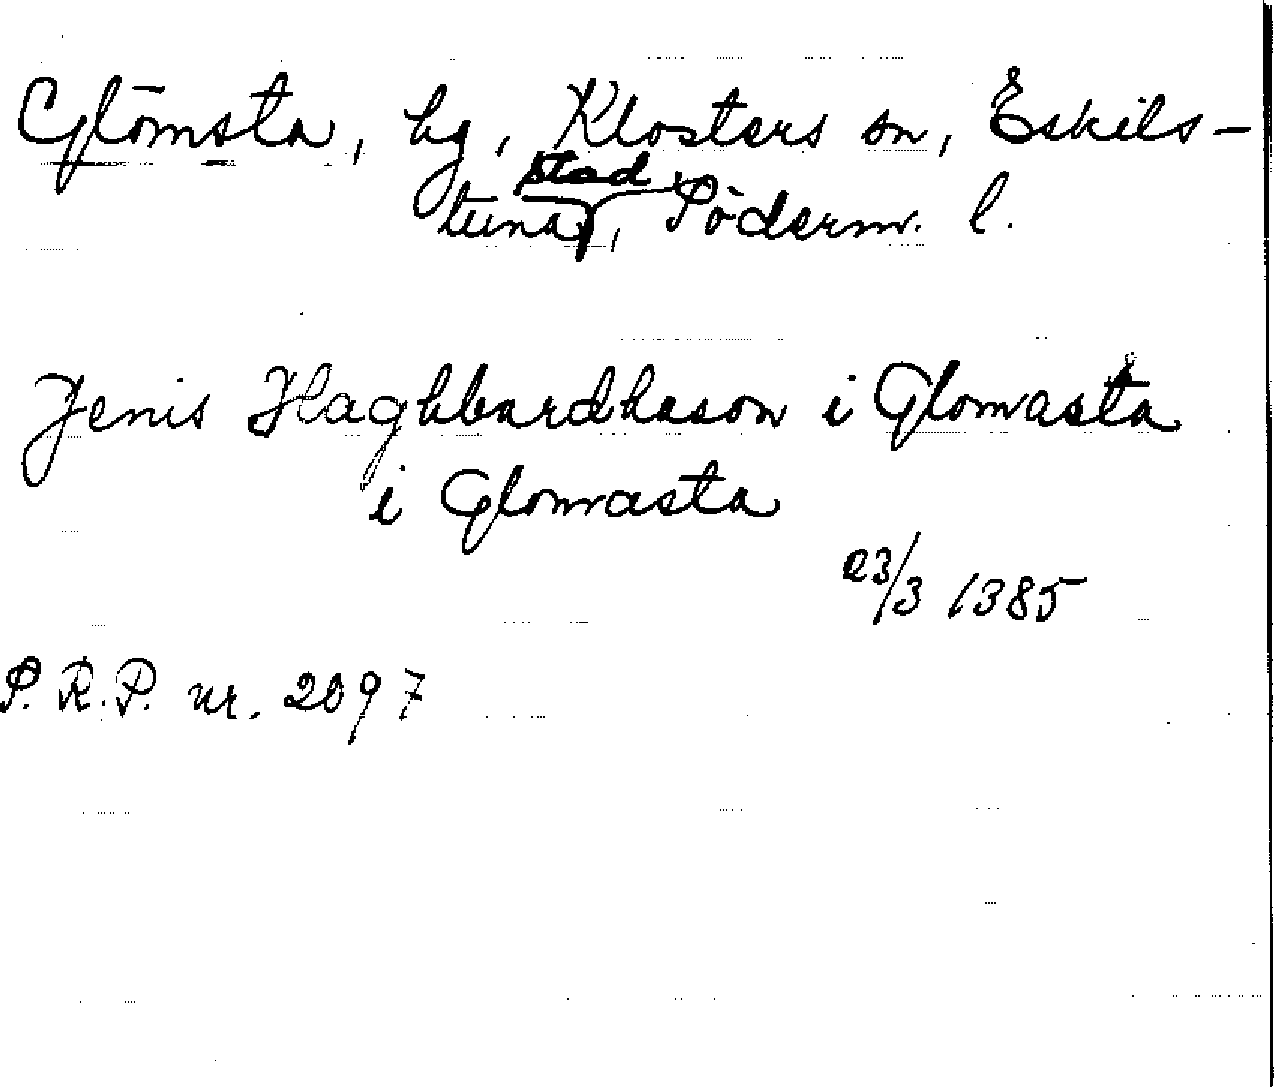 Glömsta, by, Klosters sn, Eskils-
tuna stad, Söderm. l.
Jenis Haghbardhason i Glomasta
i Glomasta
23/3 1385
S.R.P. nr. 2097